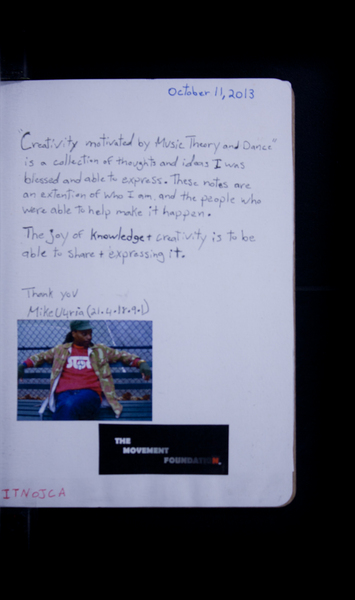 October 11, 2013
"Creativity motivated by Music Theory and Dance"
is a collection of thoughts and ideas I was
blessed and able to express. These notes are
an extention of who I am, and the people who
were able to help make it happen.
The joy of knowledge + creativity is to be
able to share + expressing it.
Thank you
Mike U4ria (21.4.18.9.1)
THE
MOVEMENT
FOUNDATION.
ITNOJCA